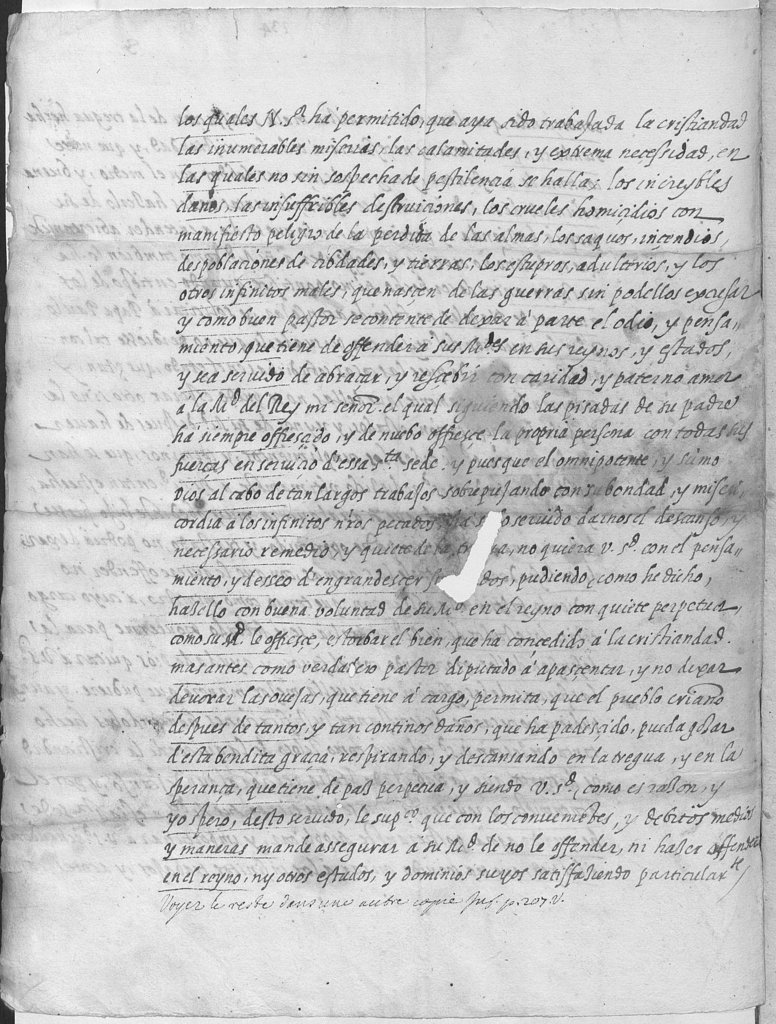 los quales N. Sr. ha permitido, que aya sido trabajada la cristiandad
las inumerables miserias, las calamitades, y extrema necessidad, en
las quales no sin sospecha de pestilencia se halla; los increybles
daños, las insuffribles destruiciones, los crueles homicidios con
manifiesto peligro de la perdida de las almas, los saquos, incendios,
despoblaciones de cibdades, y tierras, los estupros, adulterios, y los
otros infinitos males, que nascen de las guerras sin podellos excusar
y como buen pastor se contente de dexar à parte el odio, y pensa-
miento, que tiene de offender à sus Mdes en sus reynos, y estados,
y sea servido de abraçar, y rescebir con caridad, y paterno amor
a la Md del Rey mi señor el qual siguiendo las pisadas de su padre
ha siempre offrescido, y de nuebo offresce la propria persona con todas sus
fuerças en servicio d'essa sta sede. y pues que el omnipotente, y sumo
Dios al cabo de tan largos trabajos sobrepujando con su bondad, y miseri
cordia à los infinitos nros peccados, ha servido darnos el descanso, y
necessario remedio, y quiete de la, no quiera V. Sd. con el pensa-
miento, y desseo d'engrandescer dos, pudiendo, como he dicho,
hazello con buena voluntad de su Md. en el reyno con quiete perpetua,
como su Md. le offresce, estorbar el bien, que ha concedido à la cristiandad.
mas antes como verdadero pastor diputado à apascentar, y no dexar
devorar las ovejas, que tiene à cargo, permita, que el pueblo criano
despues de tantos, y tan continos daños, que ha padescido, pueda gozar
d'esta bendita gracia, respirando, y descansando en la tregua, y en la
sperança, que tiene de paz perpetua, y siendo V. Sd., como es razon, y
yo spero, desto servido, le supco que con los convenientes, y debitos medios
y maneras mande assegurar à su Md. de no le offender, ni hazer offender
en el reyno, ny otros estados, y dominios suyos satisfaziendo particularte
Voyez le reste dans une autre copie Inf. p. 207 v.